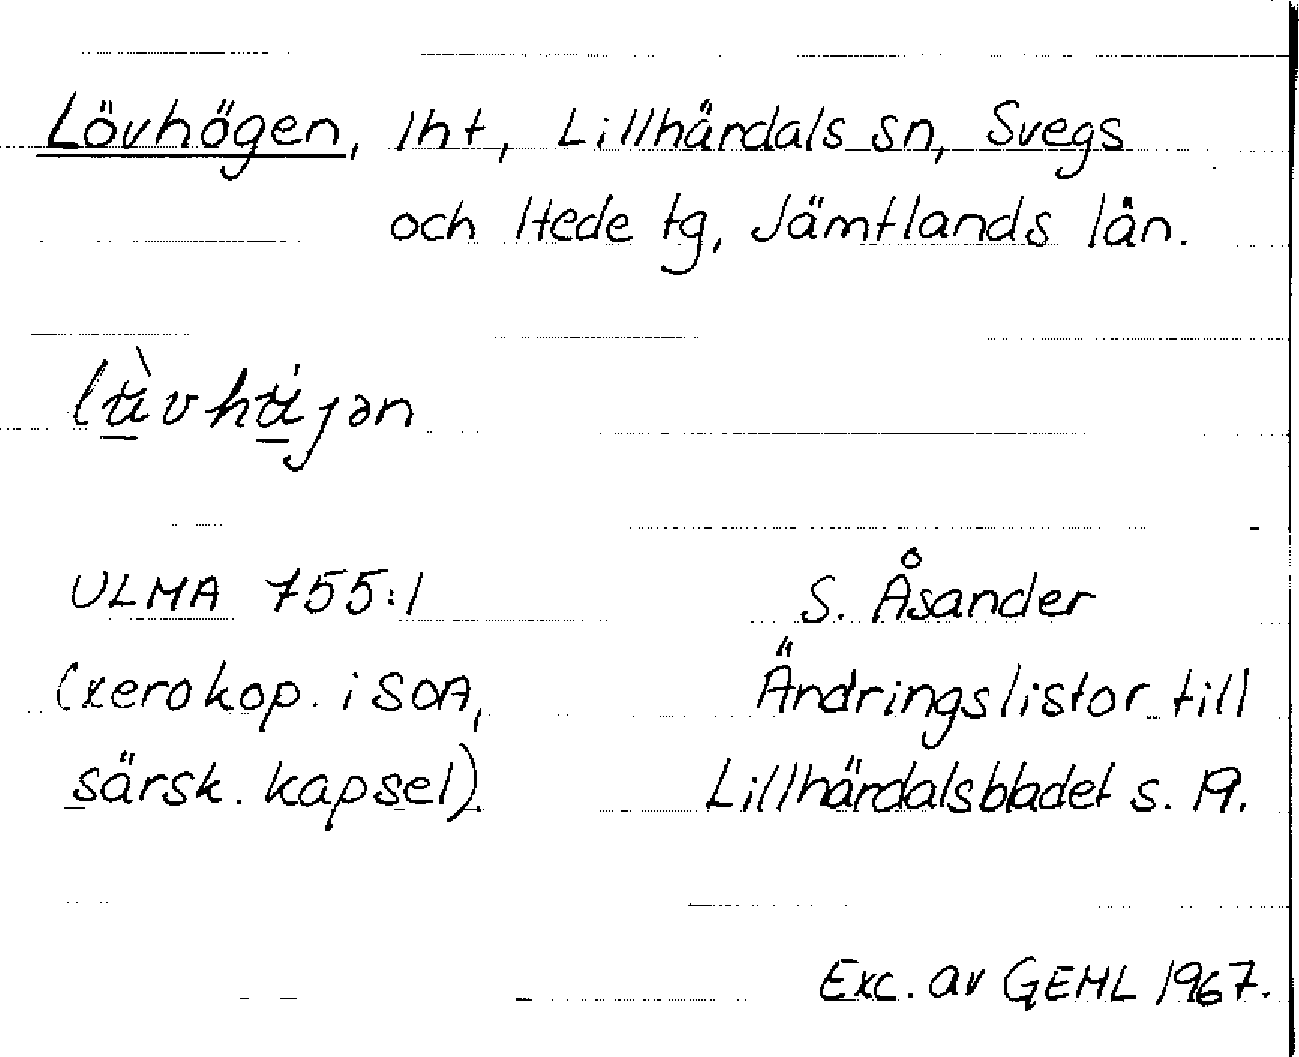 Lövhögen, lht, Lillhärdals sn, Svegs
och Hede tg, Jämtlands län.
ULMA 755:1
(xerokop. i SOA,
särsk. kapsel).
S. Åsander
Ändringslistor till
Lillhärdalsbladet s. 19.
Exc. av GEHL 1967.